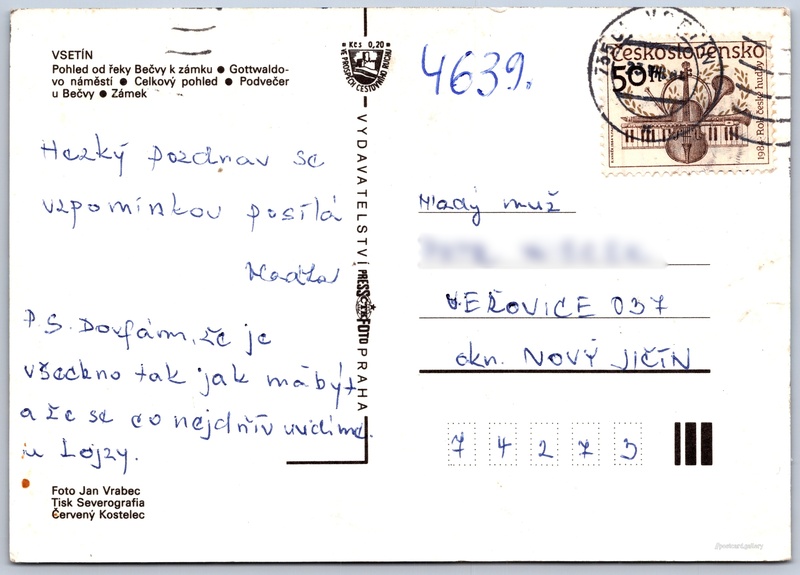 VSETÍN
Pohled od řeky Bečvy k zámku ● Gottwaldo-
vo náměstí ● Celkový pohled ● Podvečer
u Bečvy ● Zámek
Kčs 0,20
VE PROSPĚCH CESTOVNÍHO RUCHU
4639.
Československo
50 h
1984 - Rok české hudby
Hezký pozdrav se
vzpomínkou posílá
P.S. Doufám, že je
všechno tak jak má být
a že se co nejdřív uvidíme
u Lojzy.
VYDAVATELSTVÍ PRESSFOTO PRAHA
ČTK
Mladý muž
VEŘOVICE 037
okn. NOVÝ JIČÍN
74273
Foto Jan Vrabec
Tisk Severografia
Červený Kostelec
//postcard.gallery